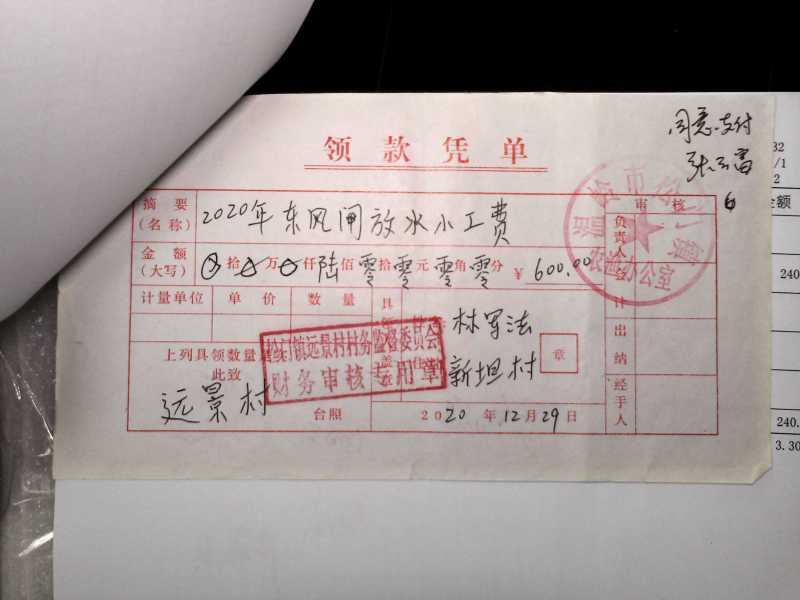 同意支付
领款凭单
摘要
(名称)
2020年东风闸放水小工费
审核
金额
(大写)
拾万仟陆佰零拾零元零角零分
¥600.00
负责人
会计
计量单位 单价 数量
林军法
出纳
镇远景村村务监督委员会
财务审核专用章
上列具领数量
此致
章
新坦村
经手人
远景村
台照
2020年12月29日
金额
240.
3.30